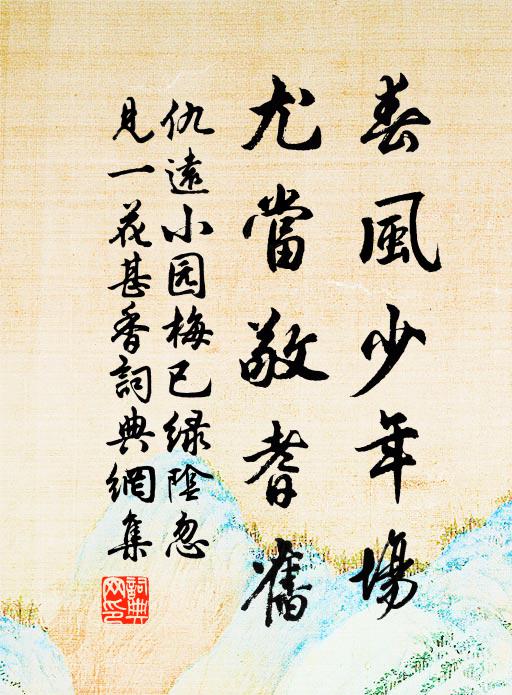 春風少年場
尤當敬耆舊
仇遠小园梅已绿陰忽
見一花甚香詞典網集
詞典網印